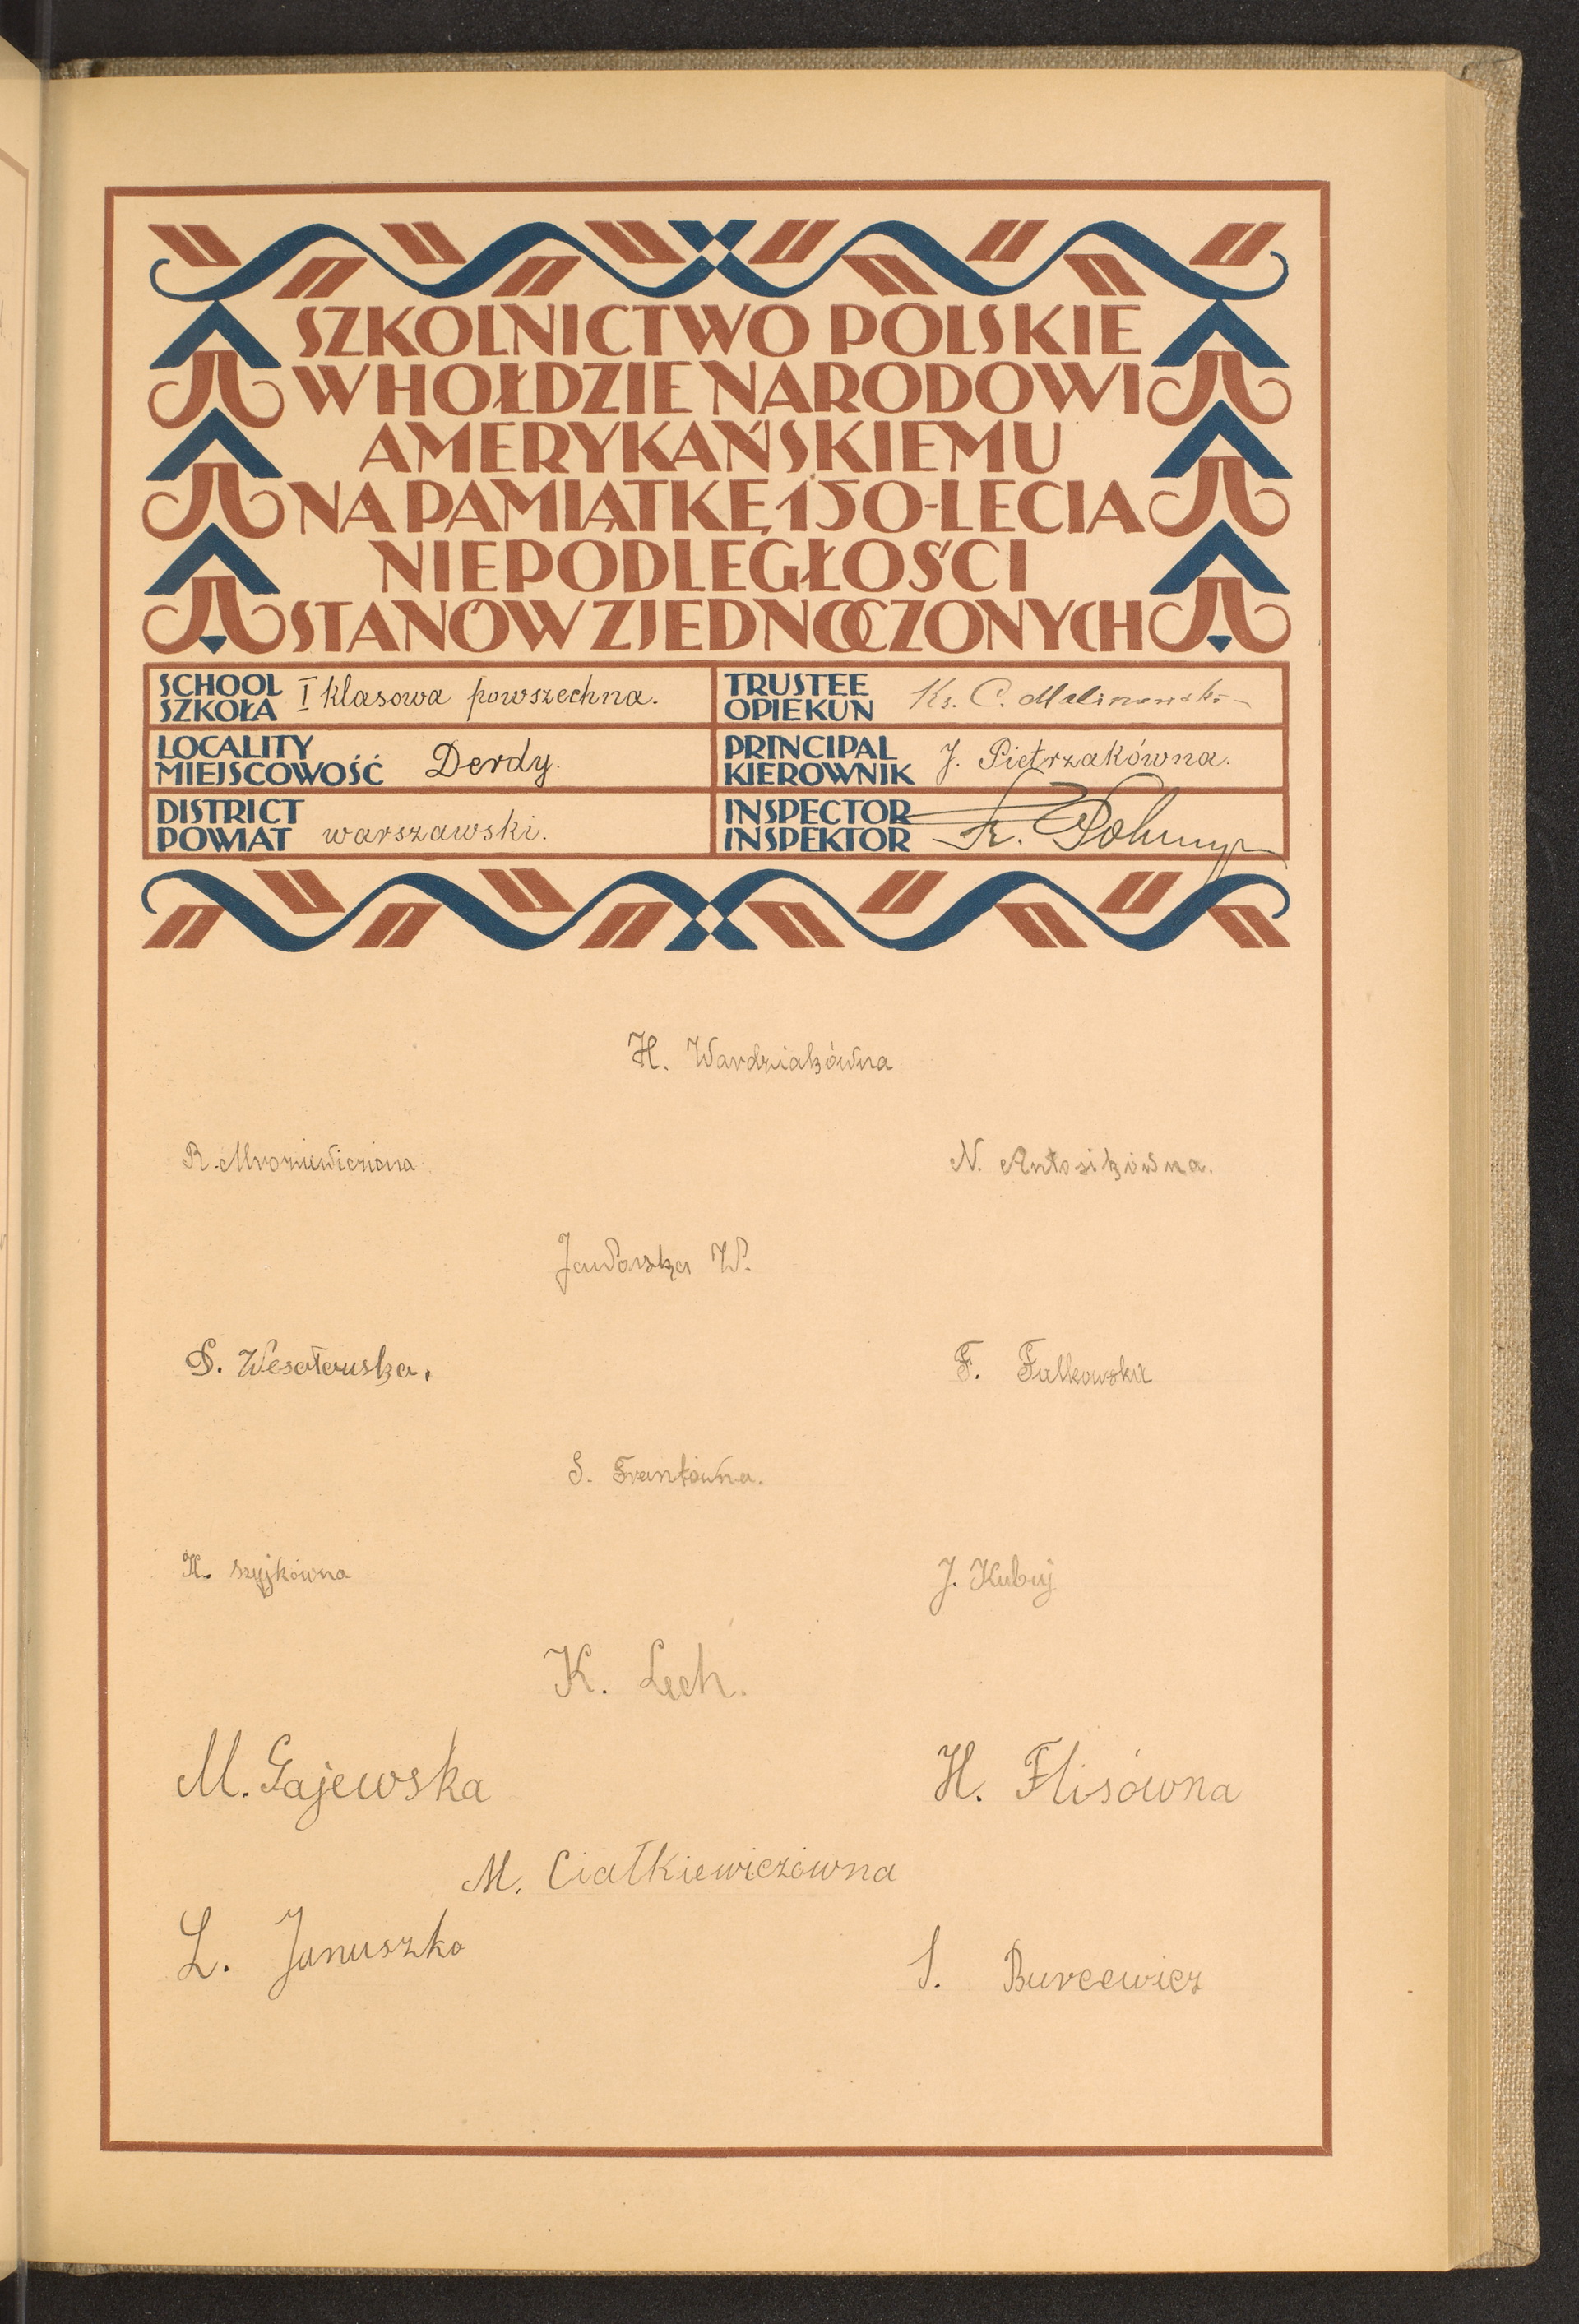 SZKOLNICTWO POLSKIE
W HOŁDZIE NARODOWI
AMERYKAŃSKIEMU
NA PAMIĄTKĘ 150-LECIA
NIEPODLEGŁOŚCI
STANÓW ZJEDNOCZONYCH
SCHOOL
SZKOŁA I klasowa powszechna.
TRUSTEE
OPIEKUN Ks. C. Malinowski
LOCALITY
MIEJSCOWOŚĆ Derdy.
PRINCIPAL
KIEROWNIK J. Pietrzakówna.
DISTRICT
POWIAT warszawski.
INSPECTOR
INSPEKTOR Fr.
H. Wardziakówna
R. N. Antosikówna.
Jaworska W.
S. Wesołowska. F. Falkowska
S. Frankówna.
K. Szyjkówna J. Kubuj
K. Lech.
M. Gajewska H. Flisówna
M. Ciałkiewiczówna
L. Januszko S. Burcewicz